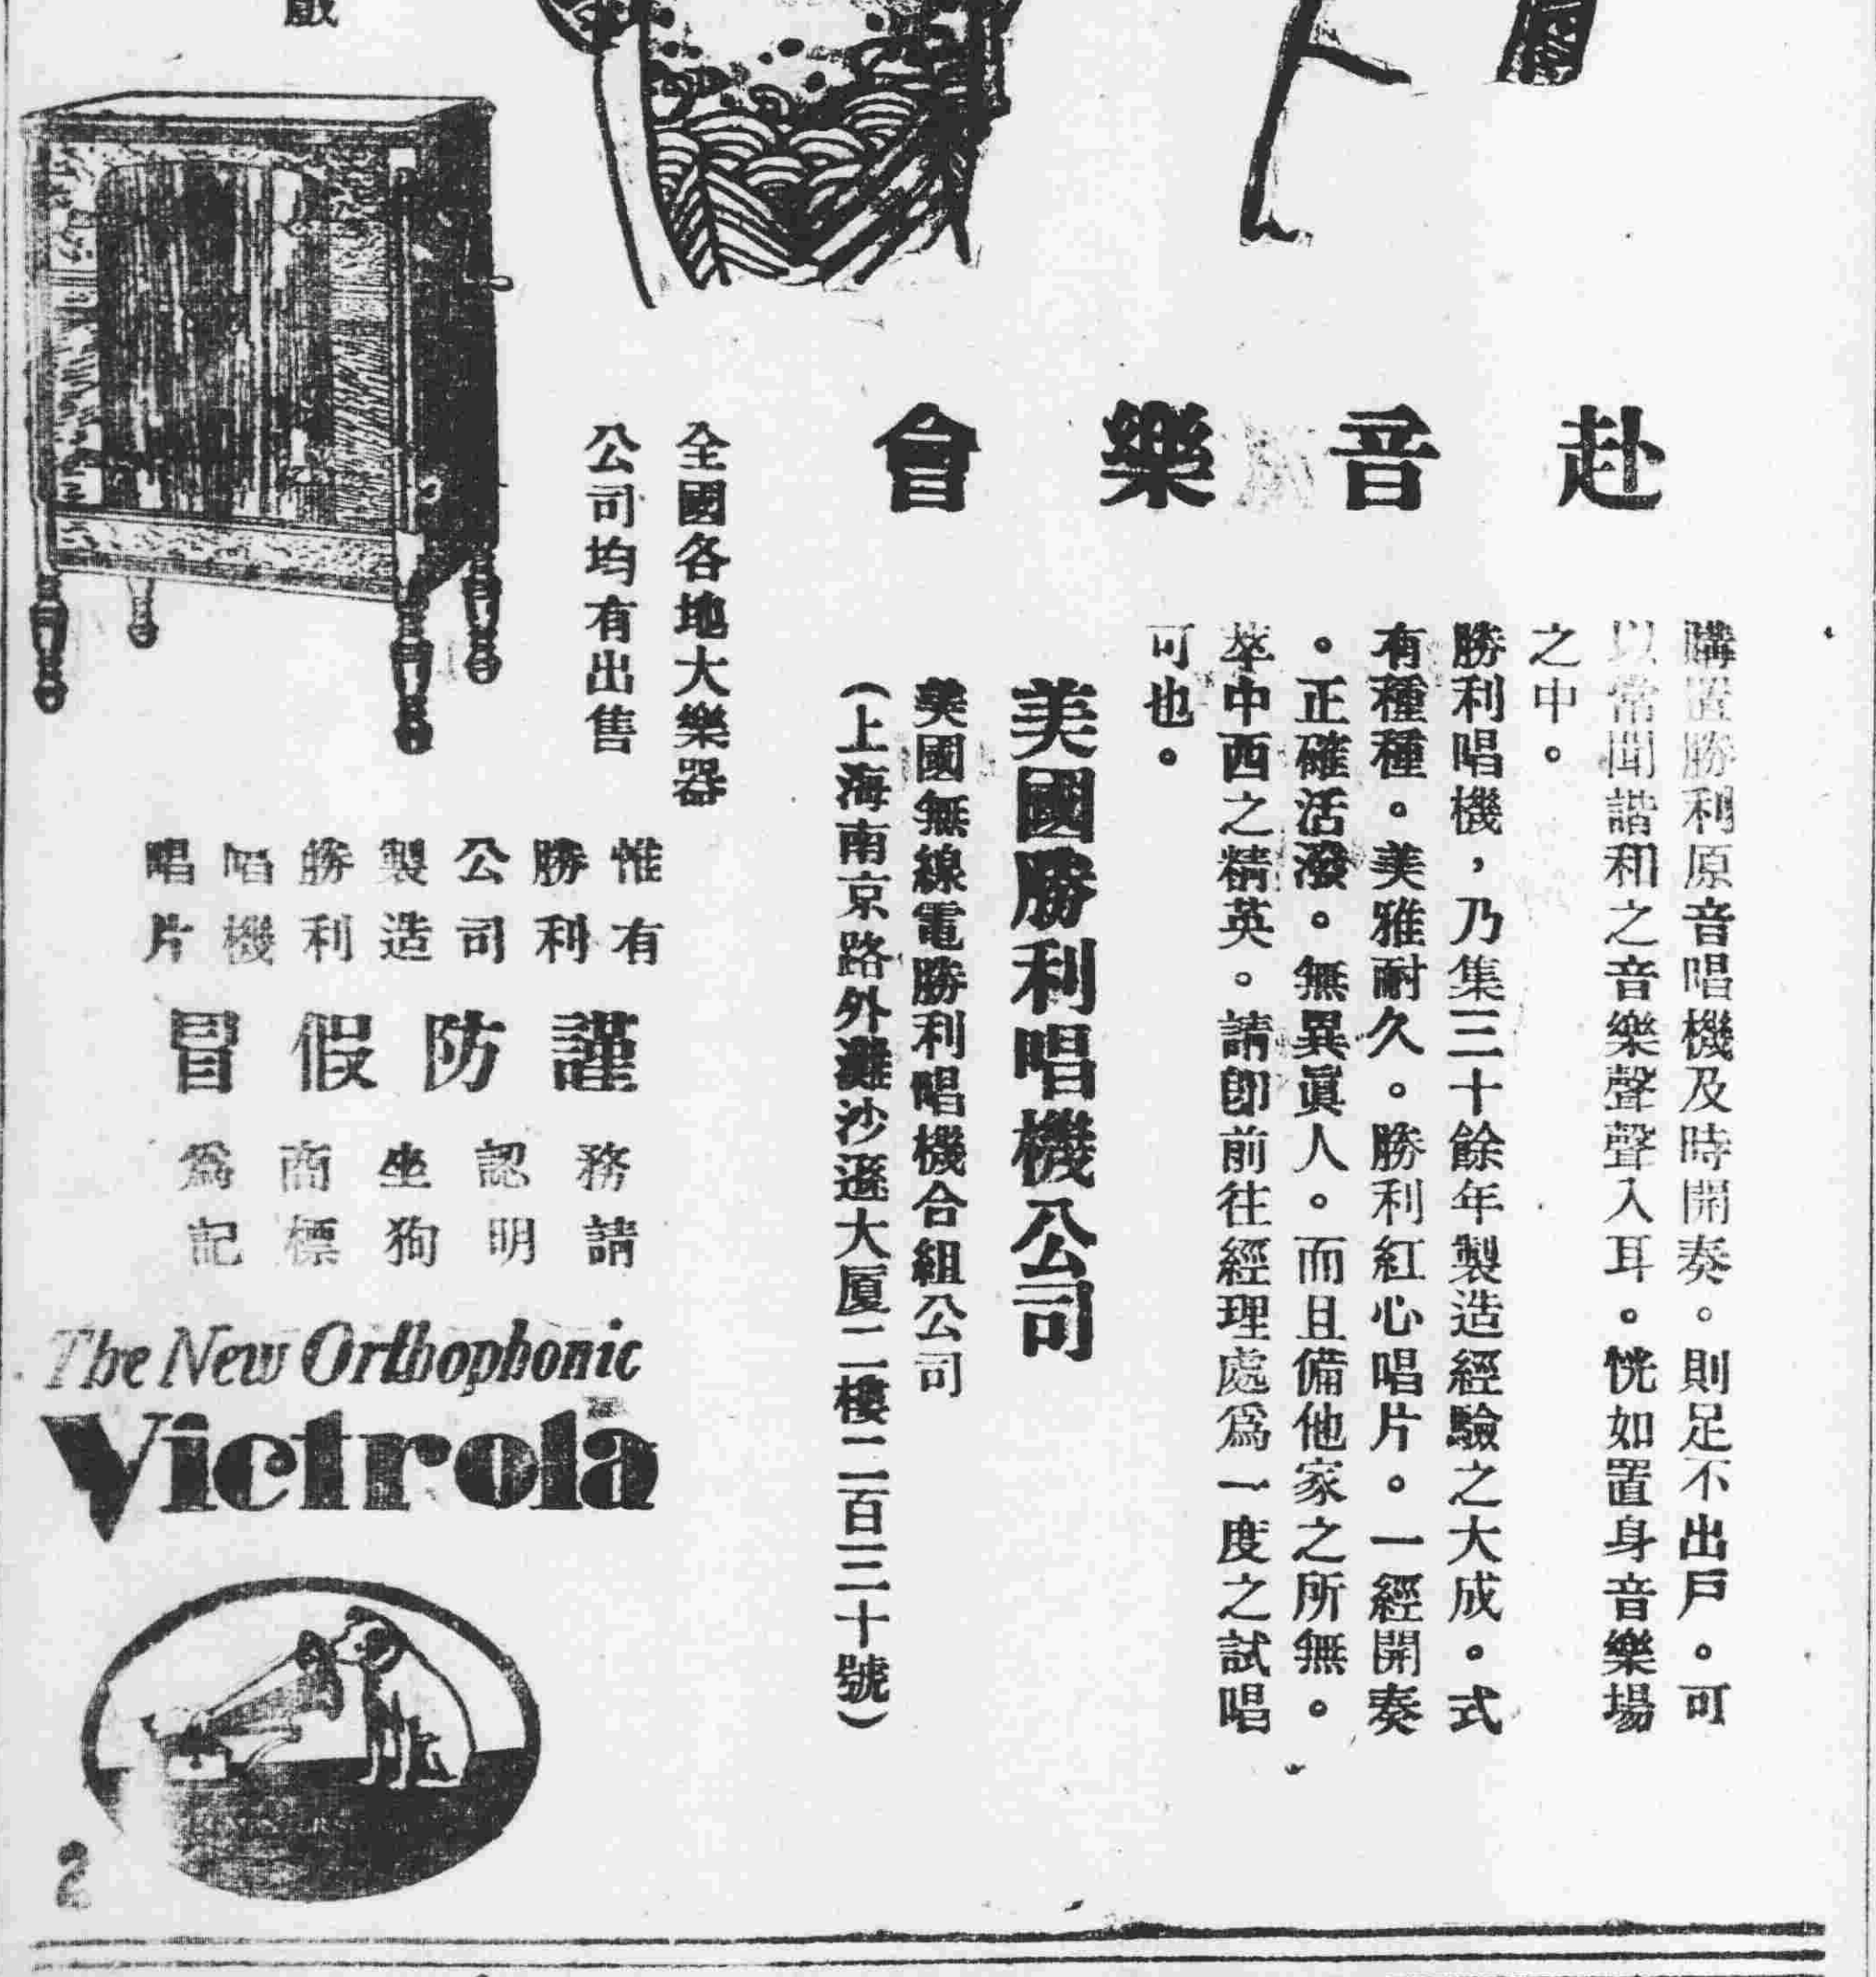 赴音樂會
購置勝利原音唱機及時開奏。則足不出戶。可
以常聞諧和之音樂聲聲入耳。恍如置身音樂場
之中。
勝利唱機，乃集三十餘年製造經驗之大成。式
有種種。美雅耐久。勝利紅心唱片。一經開奏
。正確活潑。無異眞人。而且備他家之所無。
萃中西之精英。請卽前往經理處爲一度之試唱
可也。
美國勝利唱機公司
美國無線電勝利唱機合組公司
(上海南京路外灘沙遜大厦二樓二百三十號)
全國各地大樂器
公司均有出售
惟有
勝利
公司
製造
勝利
唱機
唱片
謹防假冒
務請
認明
坐狗
商標
爲記
The New Orthophonic
Victrola
2